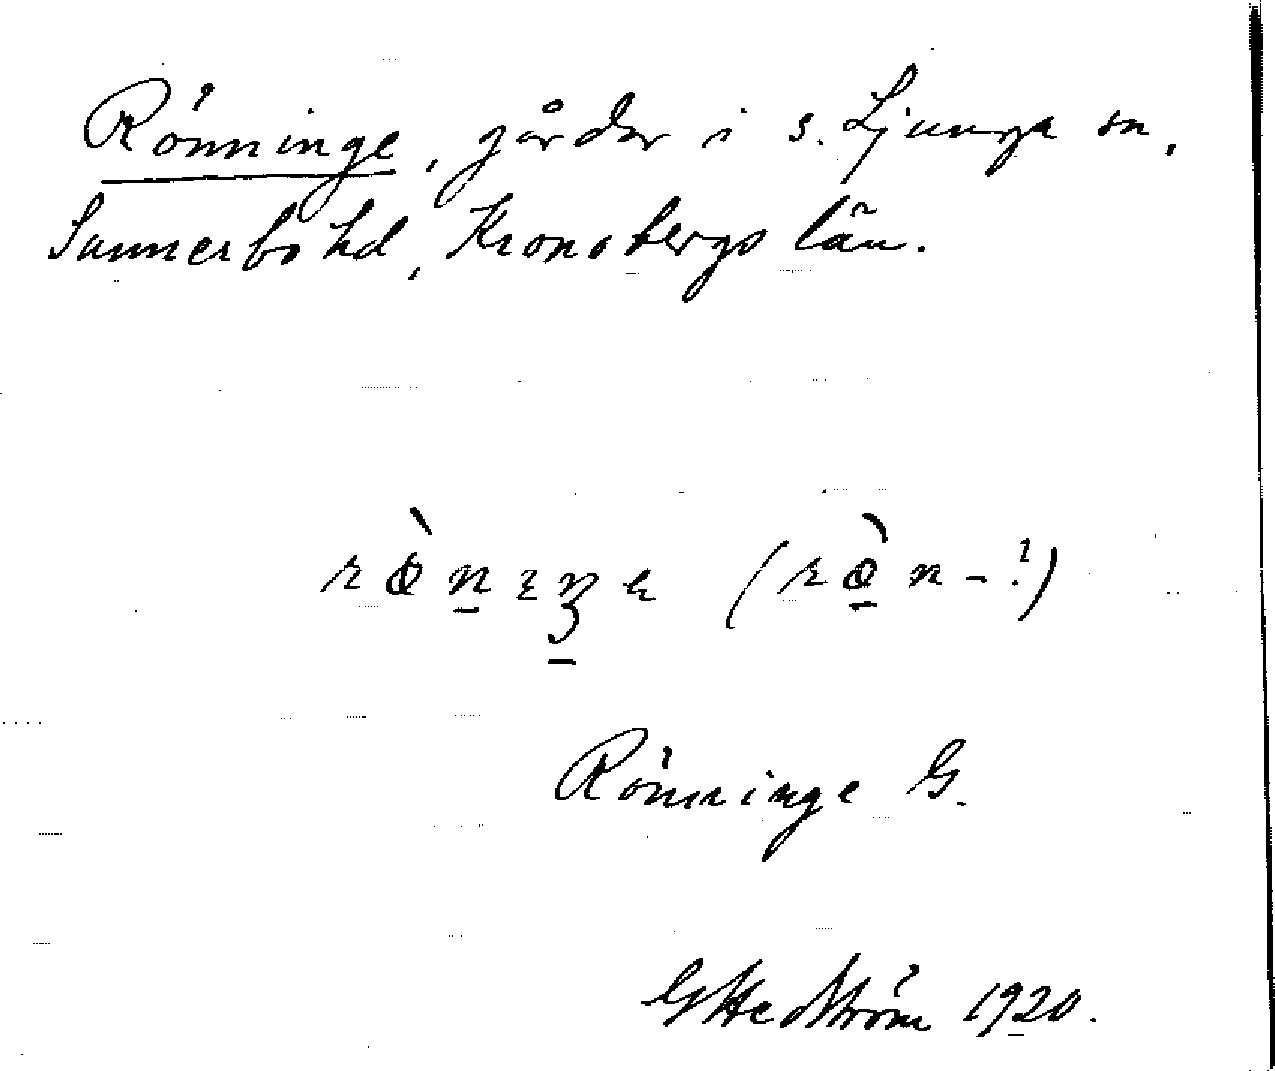 Rönninge, gårdar i s. Ljunga sn,
Sunnerbo hd, Kronobergs län.
Rönninge G.
GHedström 1920.